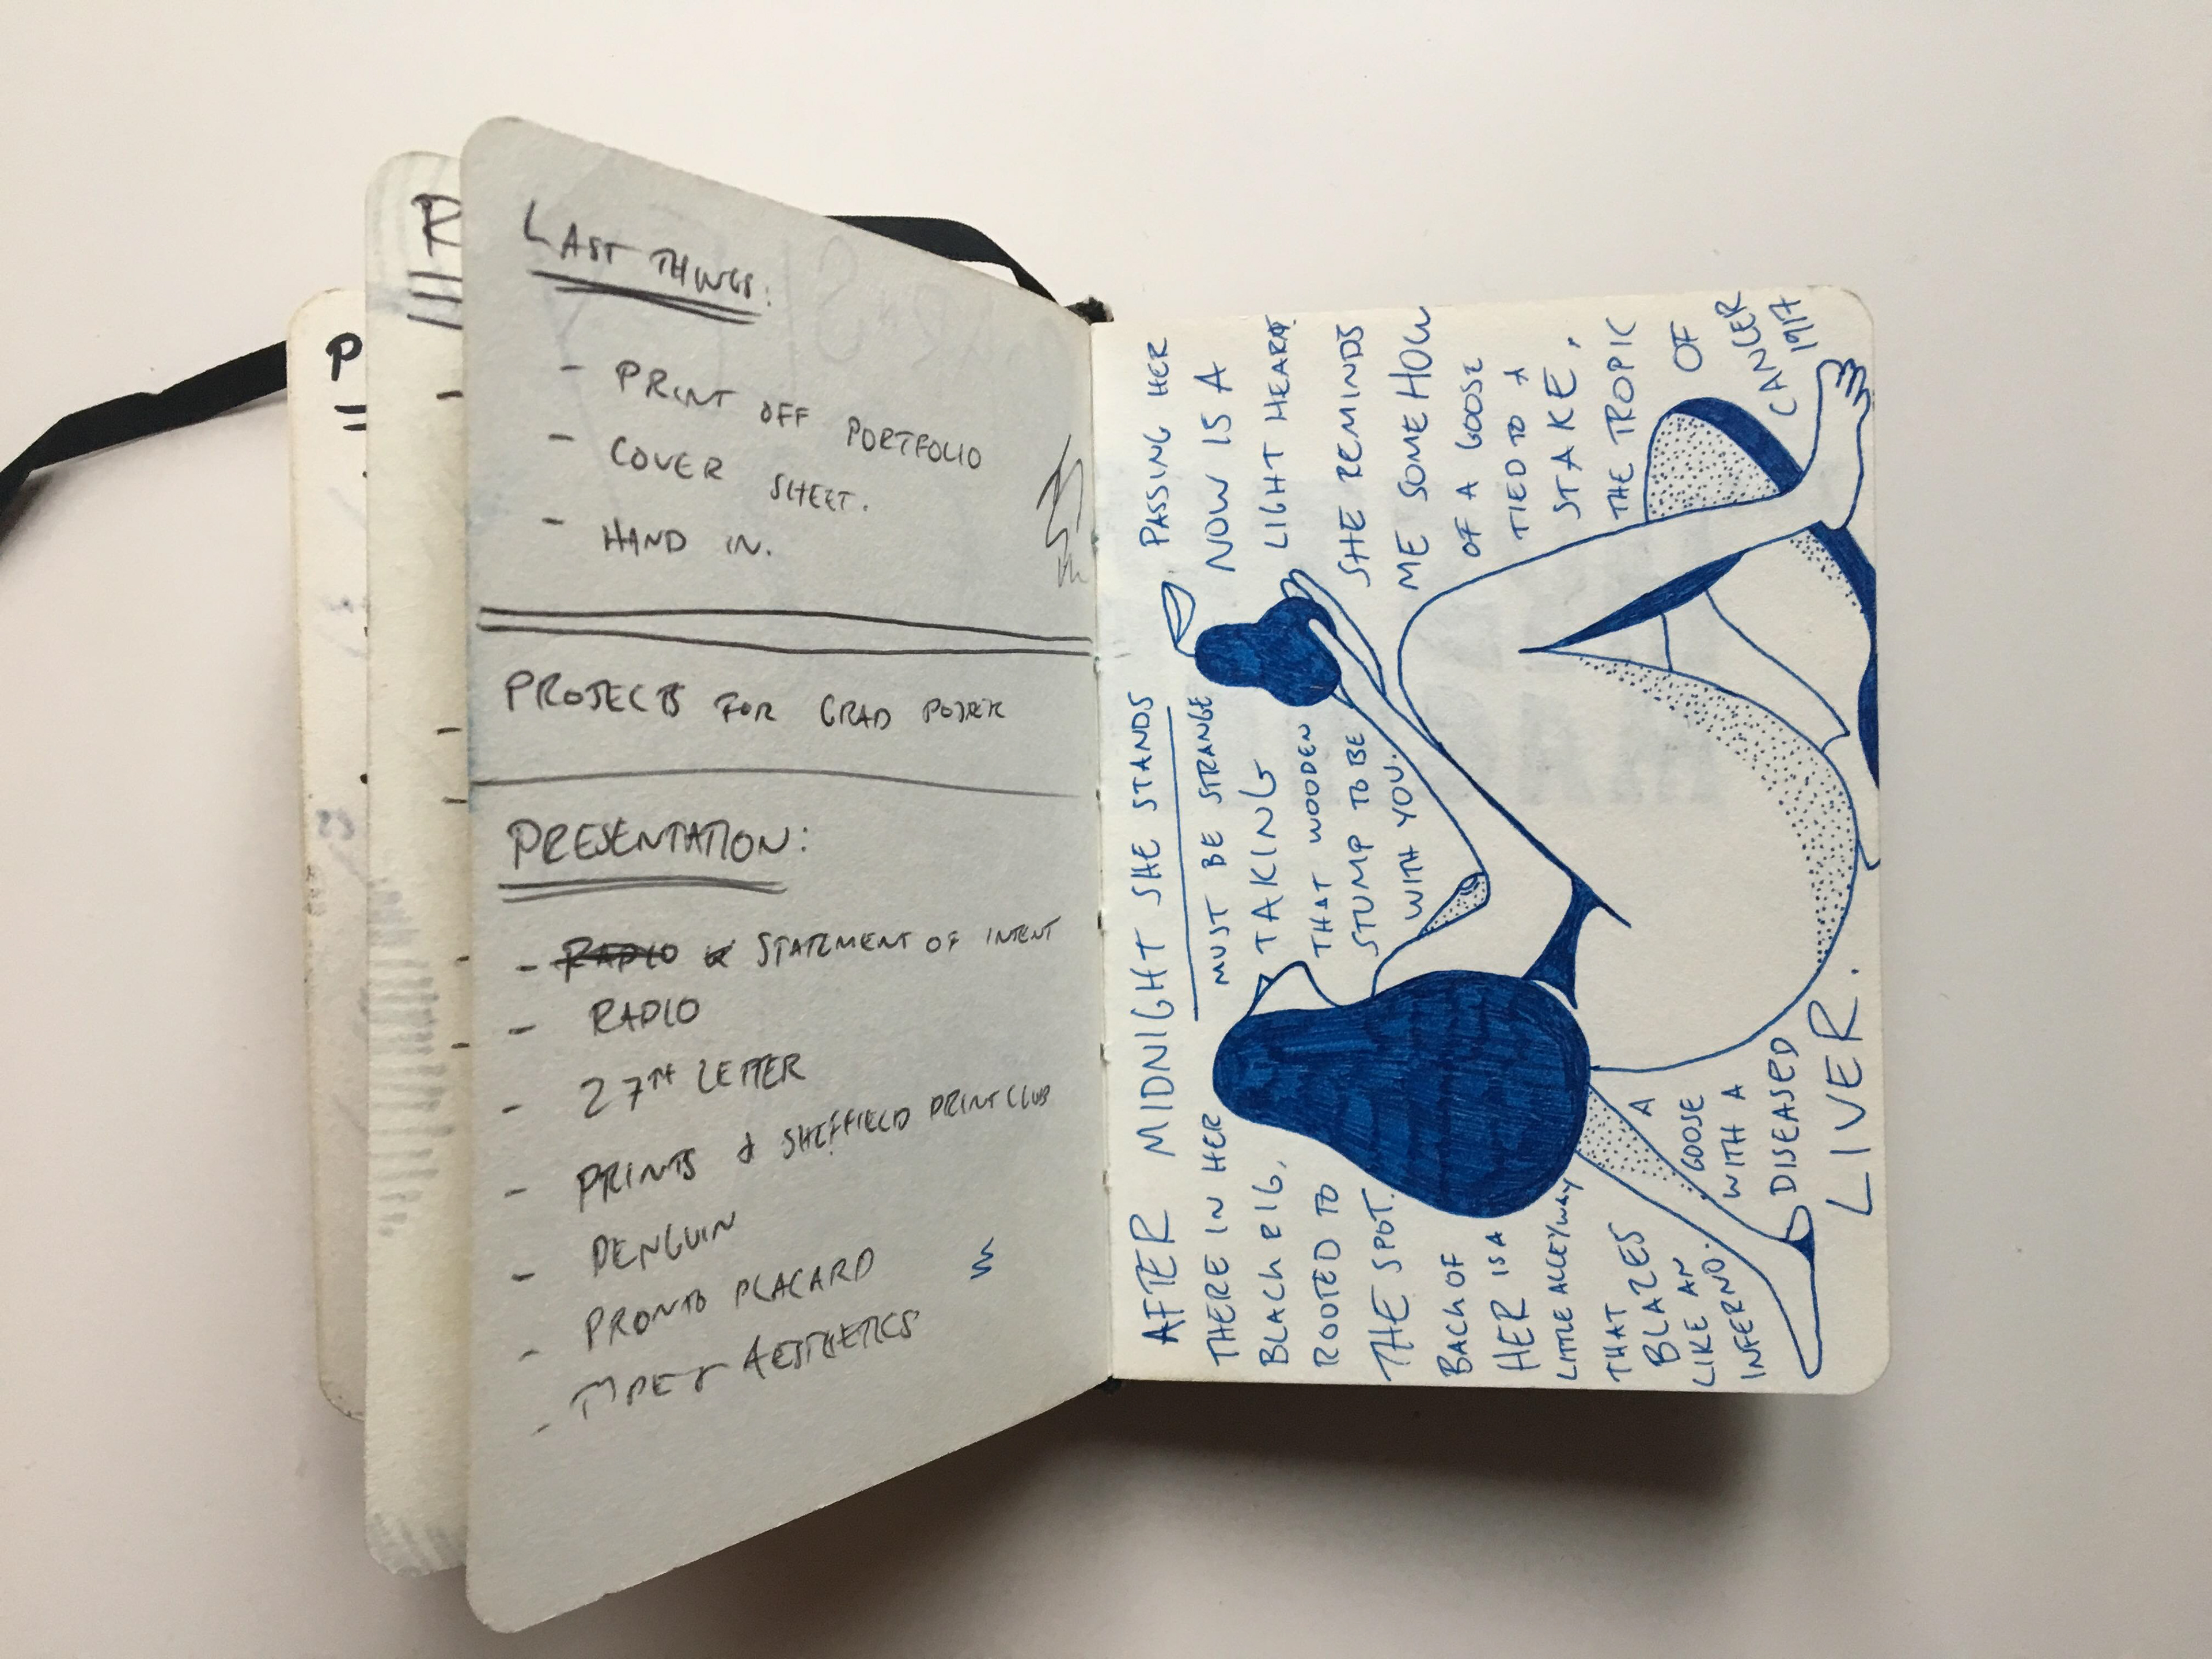 LAST THINGS:
- PRINT OFF PORTFOLIO
- COVER SHEET.
- HAND IN.
PROJECTS FOR GRAD POSTER
PRESENTATION:
- STATEMENT OF INTENT
- RADIO
- 27TH LETTER
- PRINTS & SHEFFIELD PRINT CLUB
- PENGUIN
- PRONTO PLACARD
- AESTHETICS
AFTER MIDNIGHT SHE STANDS
THERE IN HER
BLACK RIG,
ROOTED TO
THE SPOT.
BACK OF
HER IS A
LITTLE ALLEYWAY
THAT
BLAZES
LIKE AN
INFERNO.
PASSING HER
NOW IS A
LIGHT HEART
SHE REMINDS
ME SOMEHOW
OF A GOOSE
TIED TO A
STAKE,
A
GOOSE
WITH A
DISEASED
LIVER.
MUST BE STRANGE
TAKING
THAT WOODEN
STUMP TO BE
WITH YOU.
THE TROPIC
OF
CANCER